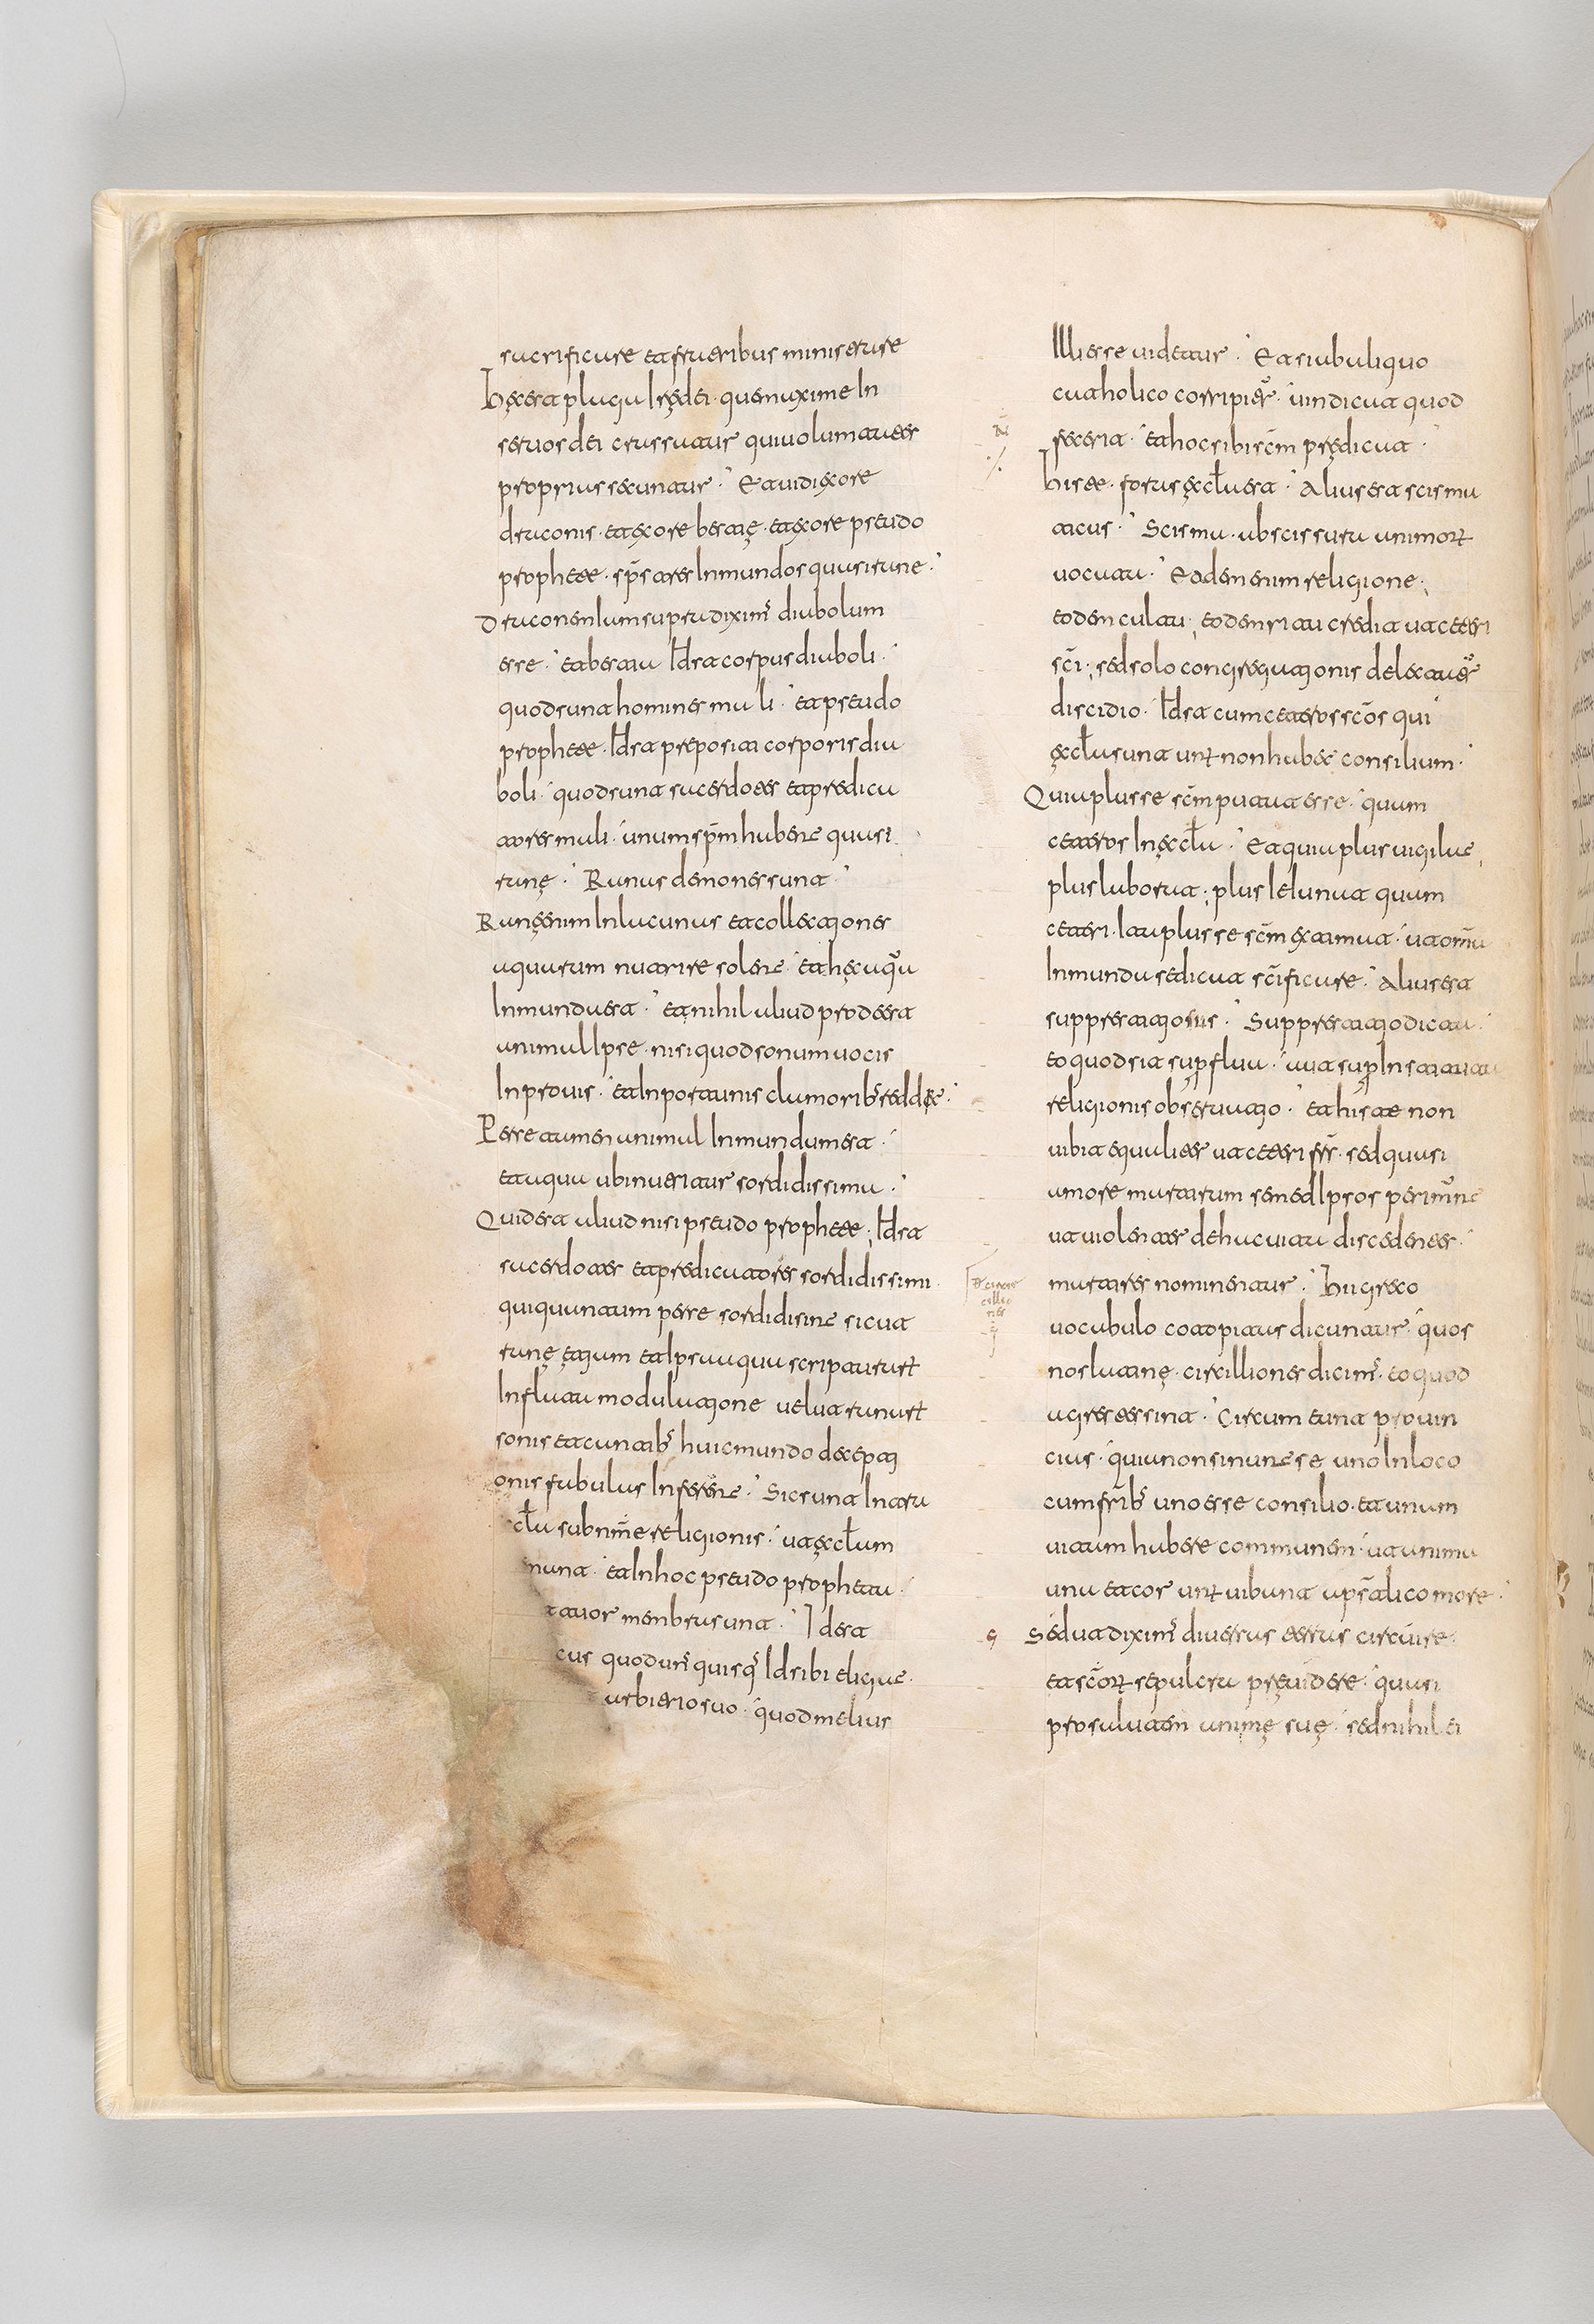 sacrificare et fratribus ministrare
hęc est plaga Irę dei. que maxime In
servos dei crassatur qui volumtates
proprias secuntur. Et vidi ex ore
draconis. et ex ore bestię. et ex ore pseudo
prophete. sp̄s tres Inmundos quasi rane.
Draconem Iam supra dixim̄ diabolum
esse. et bestia Id est corpus diaboli.
quod sunt homines mali. et pseudo
prophete. Id est prepositi corporis dia
boli. quod sunt sacerdotes et predica
tores mali. unum sp̄m habere quasi
ranę. Ranas demones sunt.
Ranę enim In lacunas et collectiones
aquarum natrire solent. et hęc aqua
Inmunda est. et nihil aliud prodest
animal Ipse. nisi quod sonum vocis
Inprovis. et Inportunis clamorib̄ reddet.
autem animal Inmundum est.
et aqua ubi nutriatur sordidissima.
Quid est aliud nisi pseudo prophete. Id est
sacerdotes et predicatores sordidissimi.
qui quantum sordidi sint sicut
ranę et Ipsa aqua scripturarum
Inflati modulatione velut ranarum
sonis et cantib̄ huic mundo decepti
onis fabulas Inferent. Sic sunt Intra
clā sub nm̄e religionis. ut ęclām
munt. et In hoc pseudo propheta.
menbra sunt. Id est
cus quod unusquisq Id sibi eligat.
arbitrio suo. quod melius
Illi esse videtur. Et si ab aliquo
catholico corripitur. vindicat quod
fecerit. et hoc sibi scm̄ prędicat.
Iste. foras ęclā est. Alius est scisma
ticus. Scisma. ab scissura animorum
vocati. Eadem enim religione.
eodem cultu. eodem ritu credit ut ceteri
sc̄i. sed solo congregationis delectatur
discidio. Id est cum ceteros sc̄os qui
ęclā sunt unt non habet consilium.
Quia plus se scm̄ putat esse. quam
ceteros In ęclā. Et quia plus vigilat,
plus laborat. plus Ieiunat quam
ceteri. Iam plus se scm̄ extimat. ut om̄a
Inmunda se dicat sc̄ificare. Alius est
supprestitiosus. Supprestitio dicta.
eo quod sit supflua. aut sup Instituta
religionis observatio. et histe non
vibit equaliter ut ceteri fr̄s. sed quasi
amore martirum semed Ipsos
ut violenter de hac vita discedentes.
martires nominentur. Hii greco
vocabulo cotopitas dicuntur. quos
nos latine. circilliones dicim̄. eo quod
agrestes sint. Circum eunt provin
cias. quia non sinunt se uno In loco
cum fr̄ib̄ uno esse consilio. et unam
vitam habere communem. ut anima
una et cor unum vibant apsatolico more.
Sed ut dixim̄ diversas terras circuire.
et sc̄orum sepulcra previdere. quasi
pro salutem animę suę. sed nihil ei